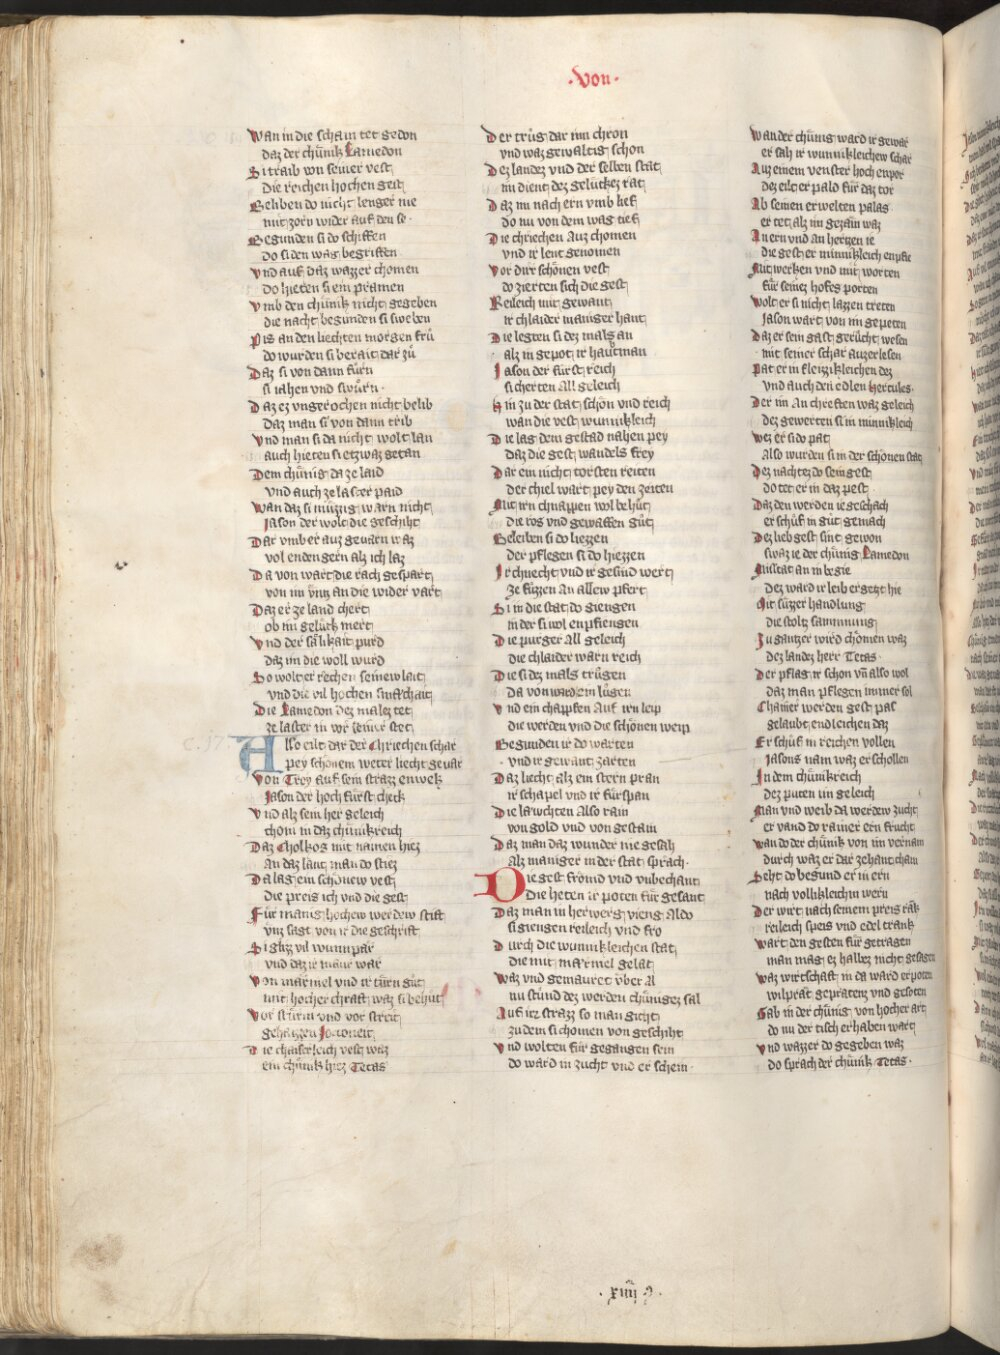 ·Von·
Wan in die scham tet gedon
daz der chünik Lamedon
Si traib von seiner vest
die reichen hochen gest
Beliben do nicht lenger nie
mit zorn wider auf den se·
Begunden si do schiffen
do si den wag begriffen
Vnd auf daz wazzer chomen
do hieten si ein pramen
Vmb den chünik nicht gegeben
die nacht begunden si sweben
Pis an den liechten morgen frü
do wurden si berait dar zů
Daz si von dann fürn
si iahen vnd swůrn·
Daz ez vngerochen nicht belib
daz man si von dann trib
Vnd man si da nicht wolt lan
auch hieten si etzwaz getan
Dem chünig da ze laid
vnd auch ze laster paid
Wan daz si müzzig warn nicht
Jason der wolt die geschiht
Dar vmber auz gevarn waz
vol endengern alz ich laz
Da von wart die rach gespart
von im vntz an die wider vart
Daz er ze land chert
ob im gelück mert
Vnd der sälikait pürd
daz im die woll würd
So wolt er rechen seinew lait
vnd die vil hochen smachait
Die Lamedon dez malez tet
ze laster in vor seiner stet
Also eilt dar der Chriechen schar
pey schönem weter liecht gevar
Von Troy auf sein straz enwek
Jason der hoch fürst chek
Vnd alz sein her geleich
chom in daz chünikreich
Daz Cholkos mit namen hiez
An daz lant man do stiez
Da lag ein schönew vest
die preis ich vnd die gest
Für manig hochew werdew stift
vnz sagt von ir die geschrift
Si ghz vil wunnpar
vnd daz ir maur war
Von märmel vnd ir türn gůt
mit hocher chraft waz si behüt
Vor stürm vnd vor streit
gehaizzen Joconeit
Die chaiserleich vest waz
ein chünik hiez Tetas
Der trůg dar inn chron
vnd waz gewaltig schon
Dez landez vnd der selben stat
im dient dez gelückez rat
Daz im nach ern vmb lief
do nu von dem wag tief
Die chriechen auz chomen
vnd ir leut genomen
Vor dirr schönen vest
do zierten sich die gest
Reileich mit gewant
ir chlaider maniger hant
Die legten si dez mals an
alz in gepot ir hauptman
Jason der fürst reich
si cherten all geleich
Hin zu der stat schön vnd reich
wan die vest wunnikleich
Die lag dem gestad nahen pey
daz die gest wandels frey
Dar ein nicht torsten reiten
der chiel wart pey den zeiten
Mit irn chnappen wol behüt
die ros vnd gewaffen gůt
Beleiben si do liezzen
der pflegen si do hiezzen
Ir chnecht vnd ir gesind wert
ze füzzen an allew pfert
Si in die stat do giengen
in der si wol enpfiengen
Die purger all geleich
die chlaider warn reich
Die si dez mals trůgen
da von warden lůgen
Vnd ein chapfen Auf irn leip
die werden vnd die schönen weip
Begunden ir do warten
vnd ir gewant zarten
Daz liecht alz ein stern pran
ir schapel vnd ir fürspan
Die lawchten Also rain
von gold vnd von gestain
Daz man daz wunder nie gesah
Alz maniger in der stat sprach·
Die gest fromd vnd vnbechant
die heten ir poten für gesant
Daz man in herwerg vieng Aldo
si giengen reileich vnd fro
Durch die wunnikleichen stat
die mit marmel gelat
Waz vnd gemauret vber Al
nu stünd dez werden chünigez sal
Auf irz strazz so man gicht
zu dem si chomen von geschiht
Vnd wolten für gegangen sein
do ward in zucht vnd er schein·
Wan der chünig ward ir gewar
er sah ir wunnikleichew schar
Auz einem venster hoch enpor
dez eilt er palo für daz tor
Ab seinen erwelten palas
er tet alz im gezam waz
An ern vnd an hertzen ie
die gest er minnikleich enpfie
Mit werken vnd mit worten
für seines hofes porten
Wolt er si nicht lazzen treten
Jason wart von im gepeten
Daz er sein gast gerücht wesen
mit seiner schar auzerlesen
Pat er in fleizzikleichen dez
vnd auch den edlen hercules·
Der im An chreften waz geleich
dez gewerten si in minnikleich
Wez er si do pat
Also wurden si in der schönen stat
Dez nachtez do sein gest
do tet er in daz pest
Daz den werden ie geschach
er schůf in gůt gemach
Dez lieb gest sint gewon
swaz ie der chünig Lamedon
Missetat an in begie
dez ward ir leib ergetzt hie
Mit süzzer handlung
die stoltz sammnung
In gantzer wird chomen waz
dez landez herr Tetas·
Der pflag ir schon vn also wol
daz man pflegen immer sol
Chainer werden gest pas
gelaubt endleichen daz
Er schůf in reichen vollen
Jasons nam waz erschollen
In dem chünikreich
dez puten im geleich
Man vnd weib da werdew zucht
er vand do rainer ern frucht
Wan do der chünik von im vernam
durch waz er dar zehant cham
Seht do begund er in ern
nach vollikleich in wern
Der wirt nach seinem preis rak
reileich speis vnd edel trank
Wart den gesten für getragen
man mag ez halbez nicht gesagen
Waz wirtschaft in da ward erpoten
wilprät gepratenz vnd gesoten
Gab in der chünig von hocher art
do nu der tisch erhaben wart
Vnd wazzer do gegeben waz
do sprach der chünik Tetas·
·xiiij 9·